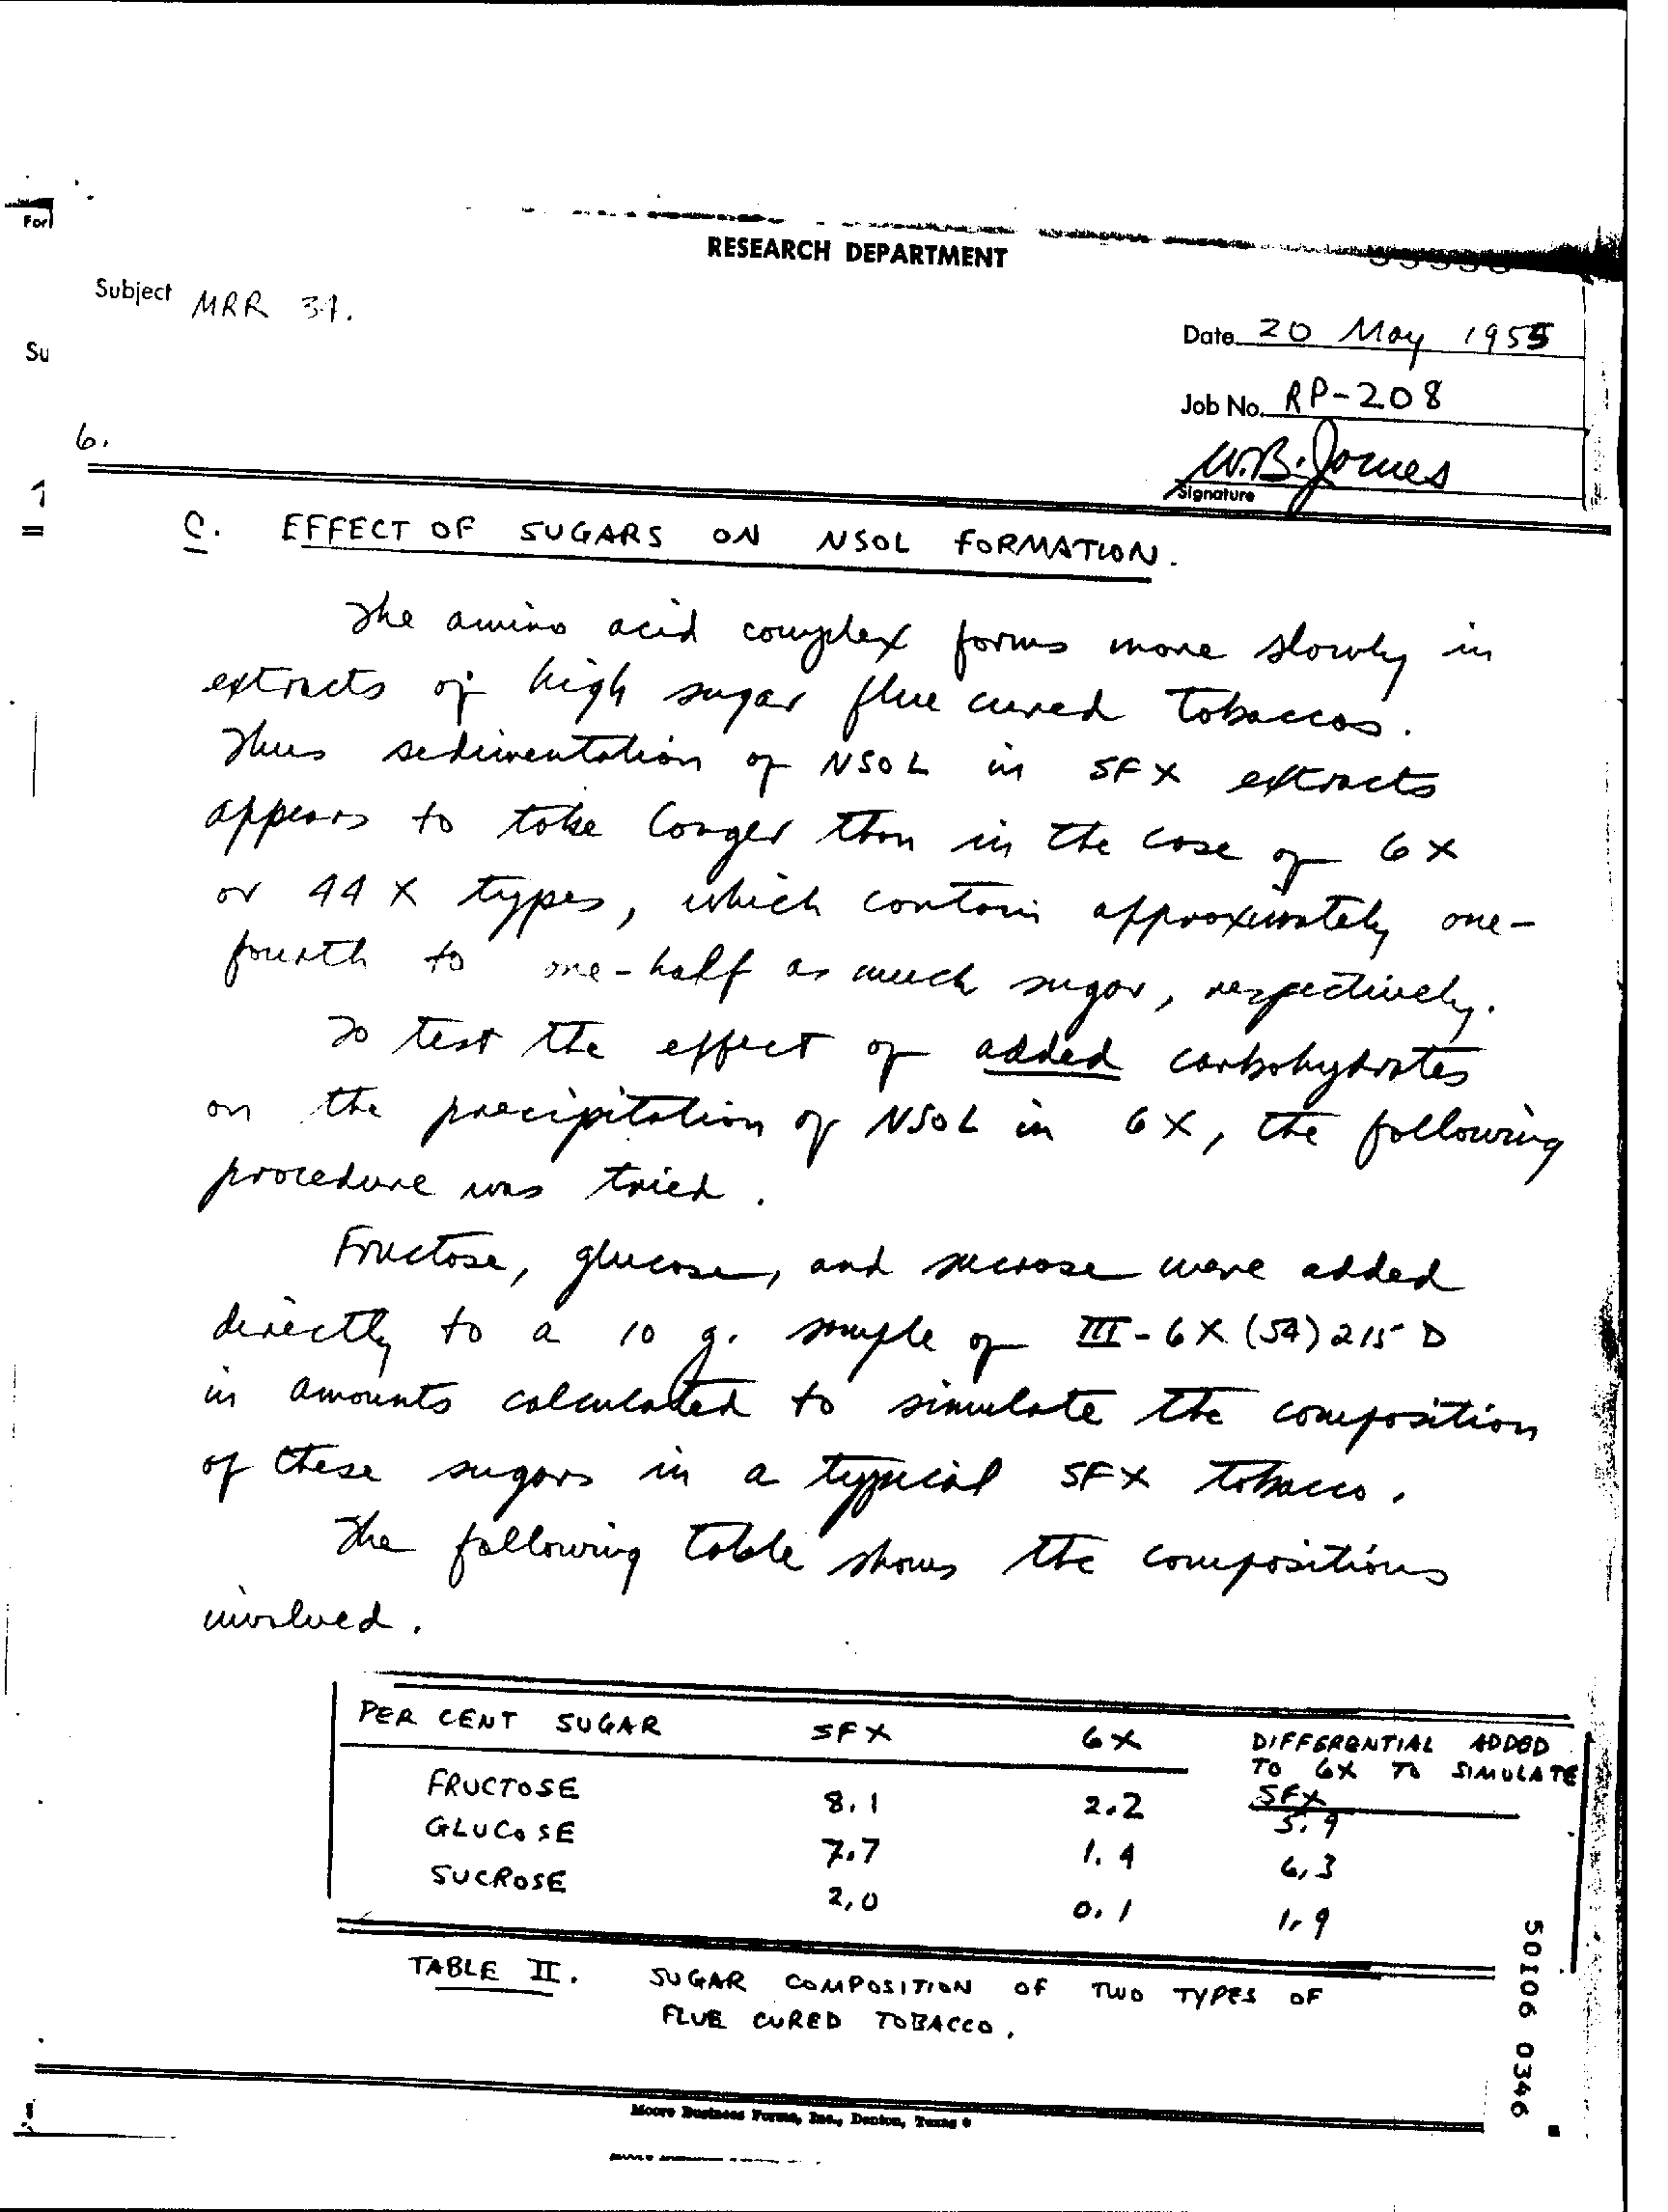 For
RESEARCH DEPARTMENT
Subject MRR 37.
Su
Date 20 May 1955
Job No. RP-208
6.
W.B. James
Signature
C. EFFECT OF SUGARS ON NSOL FORMATION.
The amino acid complex forms more slowly in
extracts of high sugar flue cured tobaccos.
Thus sedimentation of NSOL in SFX extracts
appears to take longer than in the case of 6X
or 44X types, which contain approximately one-
fourth to one-half as much sugar, respectively.
To test the effect of added carbohydrates
on the precipitation of NSOL in 6X, the following
procedure was tried.
Fructose, glucose, and sucrose were added
directly to a 10 g. sample of III-6X(54)215D
in amounts calculated to simulate the composition
of these sugars in a typical SFX tobacco.
The following table shows the compositions
involved.
PER CENT SUGAR SFX 6X DIFFERENTIAL ADDED
TO 6X TO SIMULATE
SFX
FRUCTOSE 8.1 2.2 5.9
GLUCOSE 7.7 1.4 6.3
SUCROSE 2.0 0.1 1.9
TABLE II. SUGAR COMPOSITION OF TWO TYPES OF
FLUE CURED TOBACCO.
50106 0346
Moore Business Forms, Inc., Denton, Texas